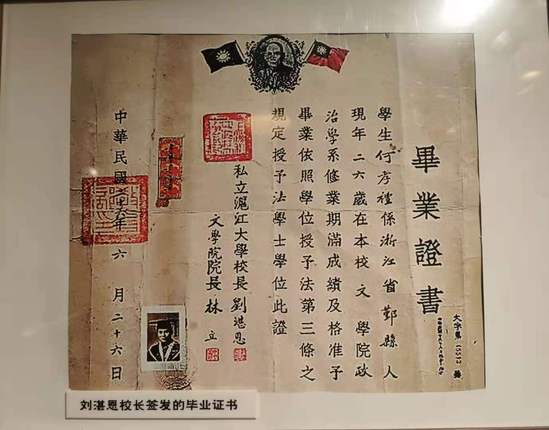 畢業證書
大字第1552號
學生何孝禮係浙江省鄞縣人
現年二六歲在本校文學院政
治學系修業期滿成績及格准予
畢業依照學位授予法第三條之
規定授予法學士學位此證
私立滬江大學校長劉湛恩
文學院院長林立
中華民國 六月二十六日
刘湛恩校长签发的毕业证书